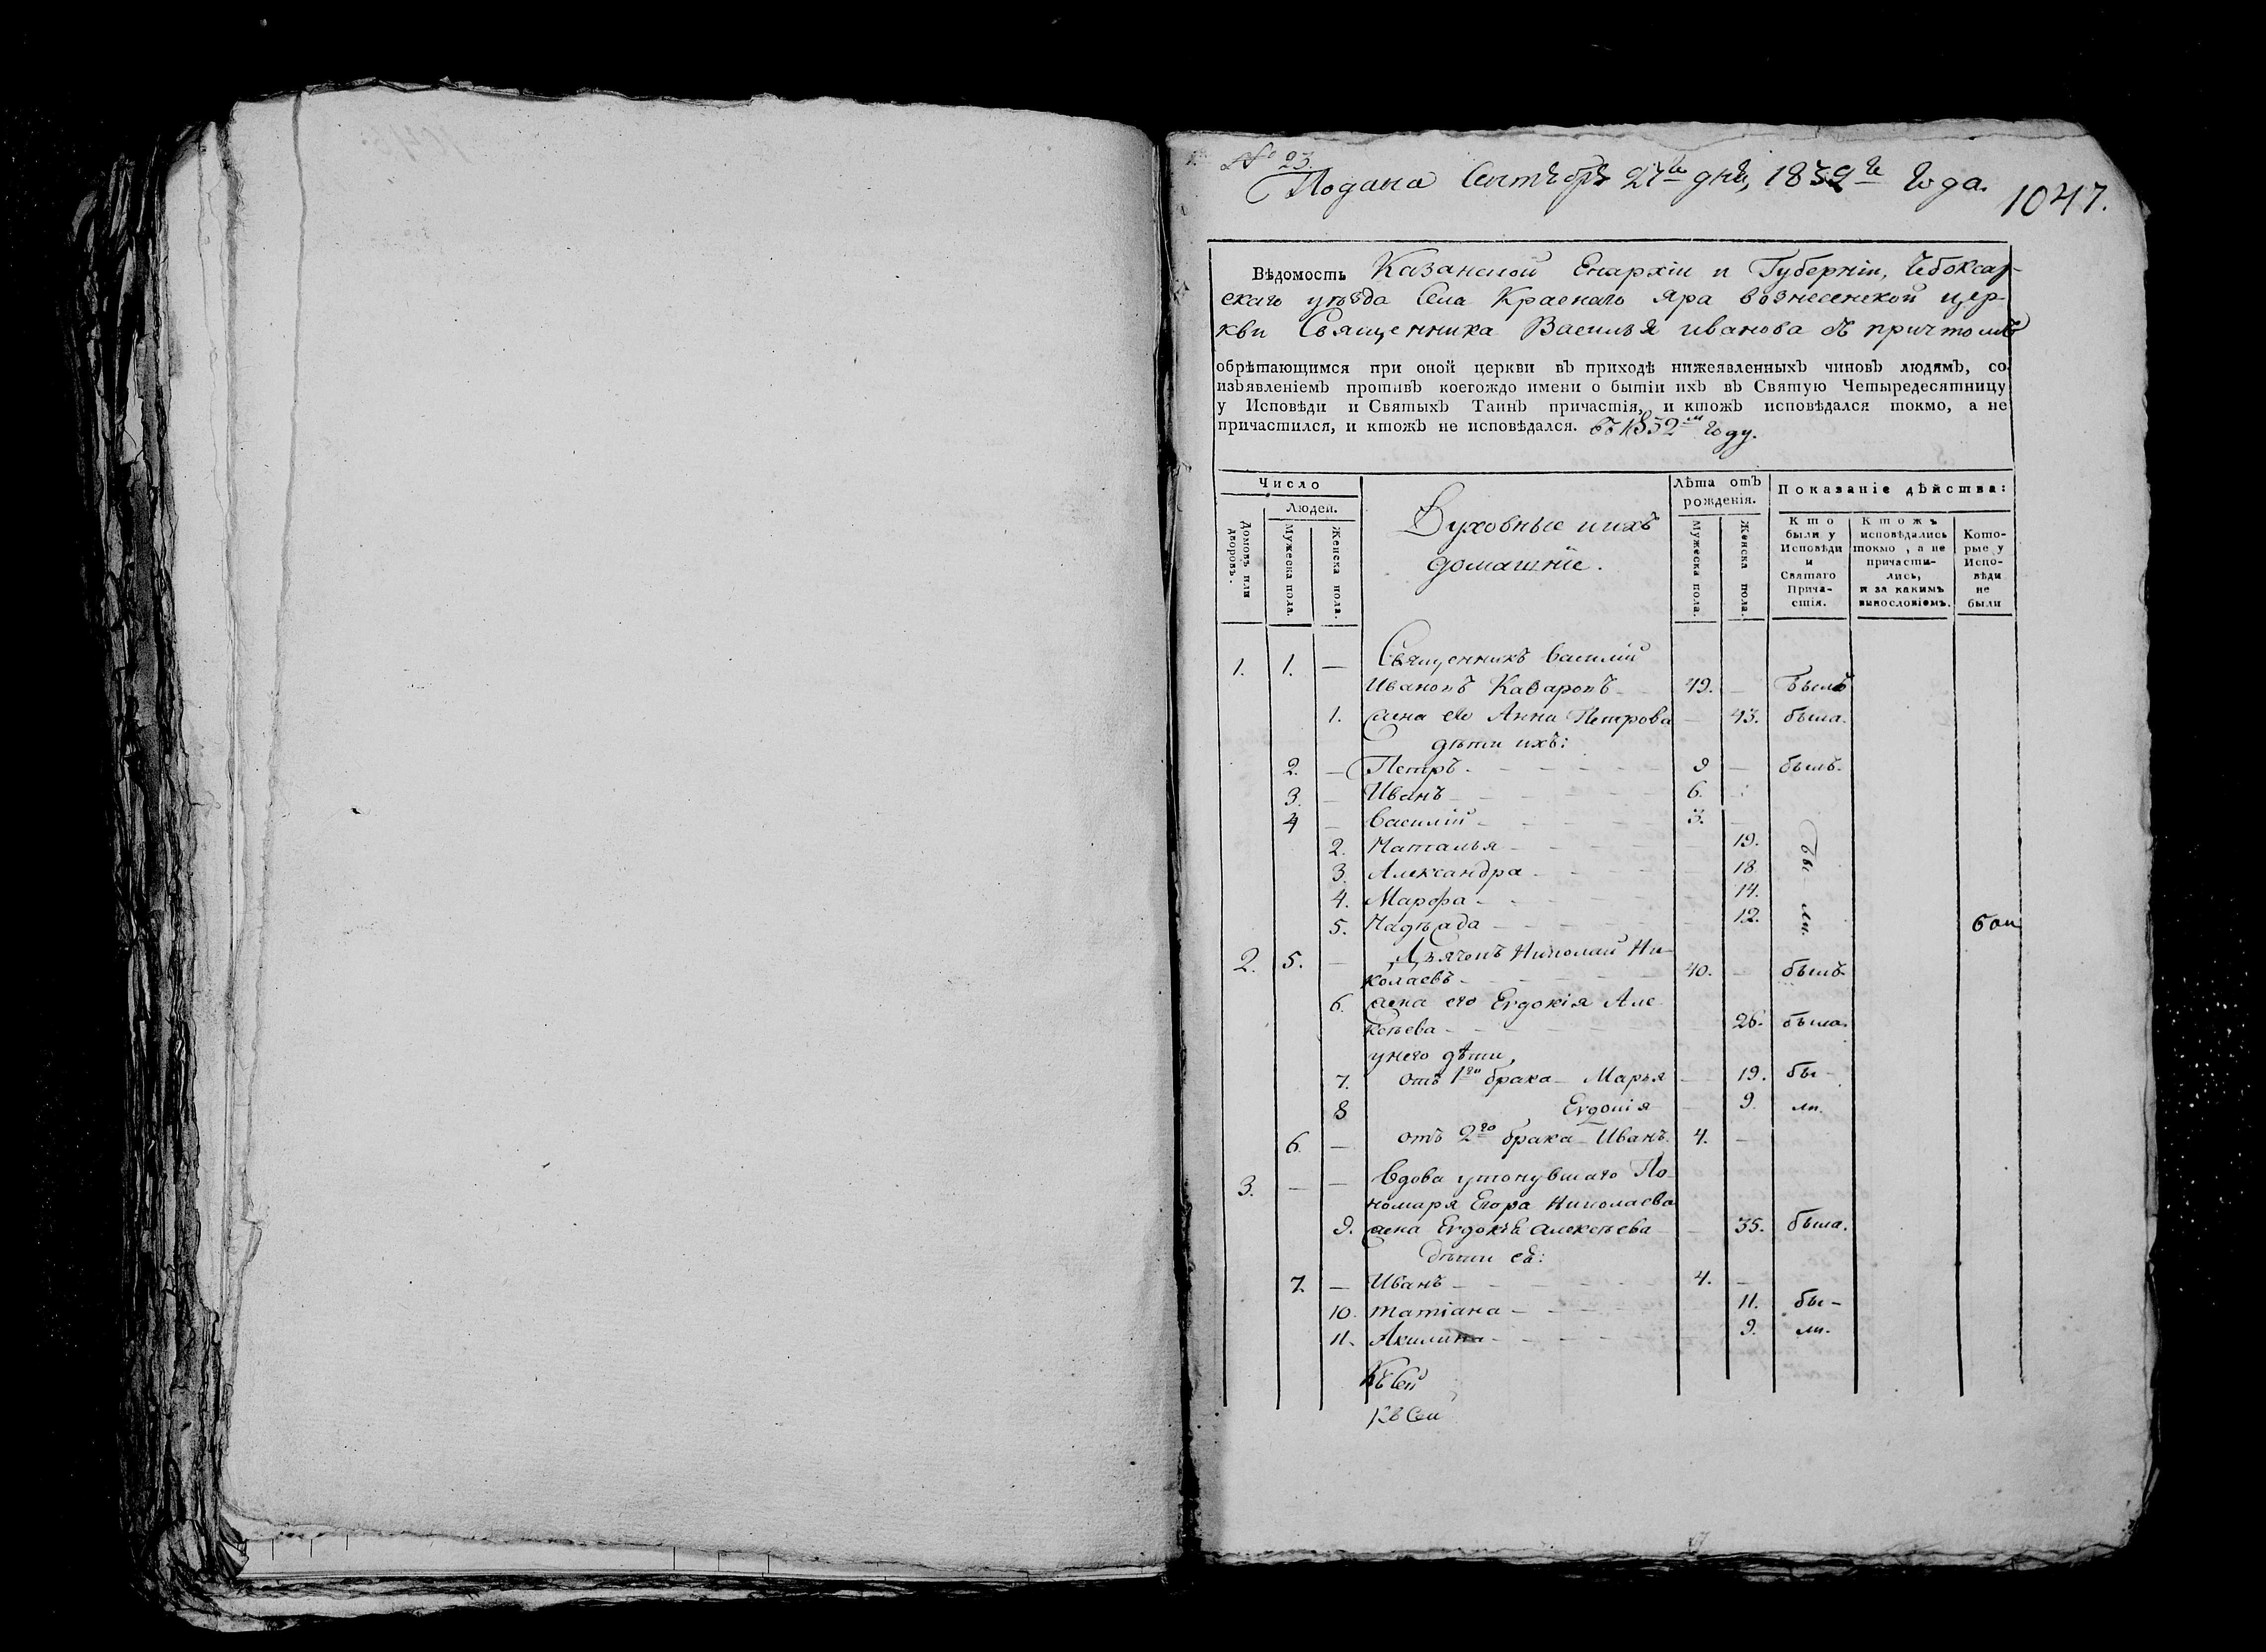 № 23.
Подана Сентября 27го дня, 1832го Года.
1047.
Вѣдомость Казанской Епархіи и Губерніи, Чебоксар-
скаго уѣзда Села Краснаго Яра вознесенской цер-
кви Священника Василья иванова съ причтомъ
обрѣтающимся при оной церкви въ приходѣ нижеявленныхъ чиновъ людямъ, со
изъявленіемъ противъ коегождо имени о бытіи ихъ въ Святую Четыредесятницу
у Исповѣди и Святыхъ Таинъ причастія, и ктожъ исповѣдался токмо, а не
причастился, и ктожъ не исповѣдался. въ 1832м году.
Число
Людей.
Домовъ или дворовъ.
Мужеска пола.
Женска пола.
Духовные и ихъ
домашніе.
Лѣта отъ
рожденія.
Мужеска пола.
Женска пола.
Показаніе дѣйства:
Кто
были у
Исповѣди
и
Святаго
Прича-
стія.
Ктожъ
исповѣдались
токмо, а не
причасти-
лись,
и за какимъ
винословіемъ.
Кото-
рые у
Испо-
вѣди
не
были
1. 1. — Священникъ Василій
Ивановъ 49. — Былъ
1. жена его Анна Петрова — 43. была.
дѣти ихъ:
2. — Петръ 9 — былъ.
3. — Иванъ 6.
4 — Василій 3. —
2. Наталья 19.
3. Александра 18 бы
4. Марфа 14.
5. Надежда 12. ли.
2. 5. — Дьячокъ Николай Ни-
колаевъ 40. — былъ
6. жена его Евдокія Але-
ксѣева 26. была.
у него дѣти,
7. отъ 1го брака — Марья — 19. бы-
8 Евдокія — 9. ли.
6. — отъ 2го брака — Иванъ. 4. —
3. — — Вдова утонувшаго По-
номаря Егора Николаева
9. жена Евдокѣя алексѣева — 35. была.
Дѣти её:
7. — Иванъ 4. —
10. татіана 11. бы-
11. Акилина 9. ли.
Къ сей
Къ Сей